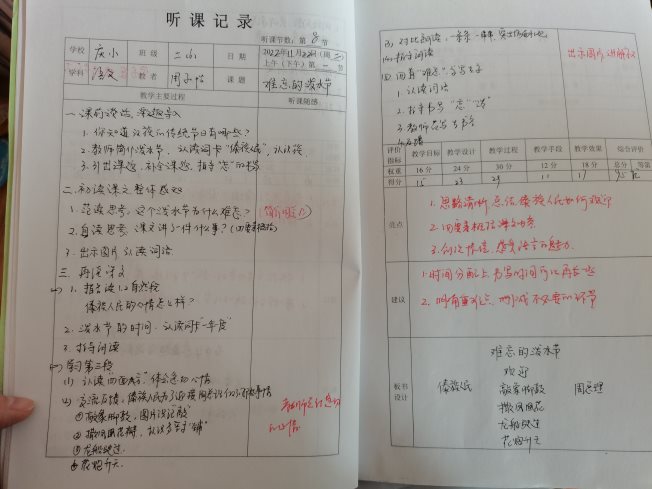 听课记录
听课节数：第 8 节
学校 庆小 班级 二 日期 2022年11月22日
上午（下午）第 一 节
学科 语文 教者 课题 难忘的泼水节
教学主要过程 听课随感
一.课前谈话，课题导入
1. 你知道汉族的传统节日有哪些？
2. 教师简介泼水节，认读词卡“傣族”，认汉族
3. 引出课题，补全课题，指导“忘”的书写
二.初读课文 整体感知
1. 范读思考，这个泼水节为什么难忘？
2. 自读思考 课文讲了一件什么事？
3. 出示图片 认读词语
三 再读课文
(一) 1. 指名读1.2自然段
傣族人民的心情怎么样？
2. 泼水节的时间，认读词卡“一年一度”
3. 指导朗读
(二) 学习第三段
(1) 认读“四面八方”体会急切心情
(2) 交流反馈，傣族人民为了迎接周总理们做了哪些事情
①敲象脚鼓，图片识记“鼓”
②撒凤凰花瓣，
③龙船驶过
④花炮升天
(3) 对比朗读，一条条 一串串，
(4) 指导朗读
出示图片 进行
(四) 回真“难忘”
1. 认读词语
2. 指导书写“忘”“泼”
3. 教师范写
评价指标 教学目标 教学设计 教学过程 教学手段 教学效果 综合评价
权重 16分 24分 30分 12分 18分 总分 等第
得分 15 23 29 11 17 95
亮点
1. 思路清晰 总结傣族人民如何欢迎
2. 四要素概括课文内容
3. 创设情境，感受语言的魅力
建议
1. 时间分配上 书写时间可以再长些
2. 明有重难点，删减不必要的环节
板书设计
难忘的泼水节
欢迎
傣族人民 敲象脚鼓 周总理
撒凤凰花
龙船驶过
花炮升天